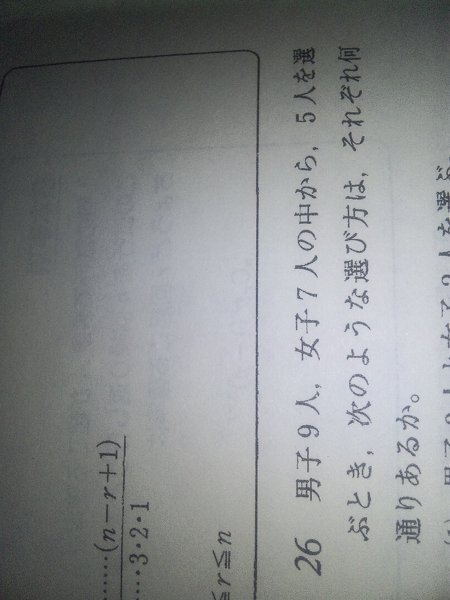 ……(n−r+1)
……3・2・1
≦r≦n
26 男子9人，女子7人の中から，5人を選
ぶとき，次のような選び方は，それぞれ何
通りあるか。